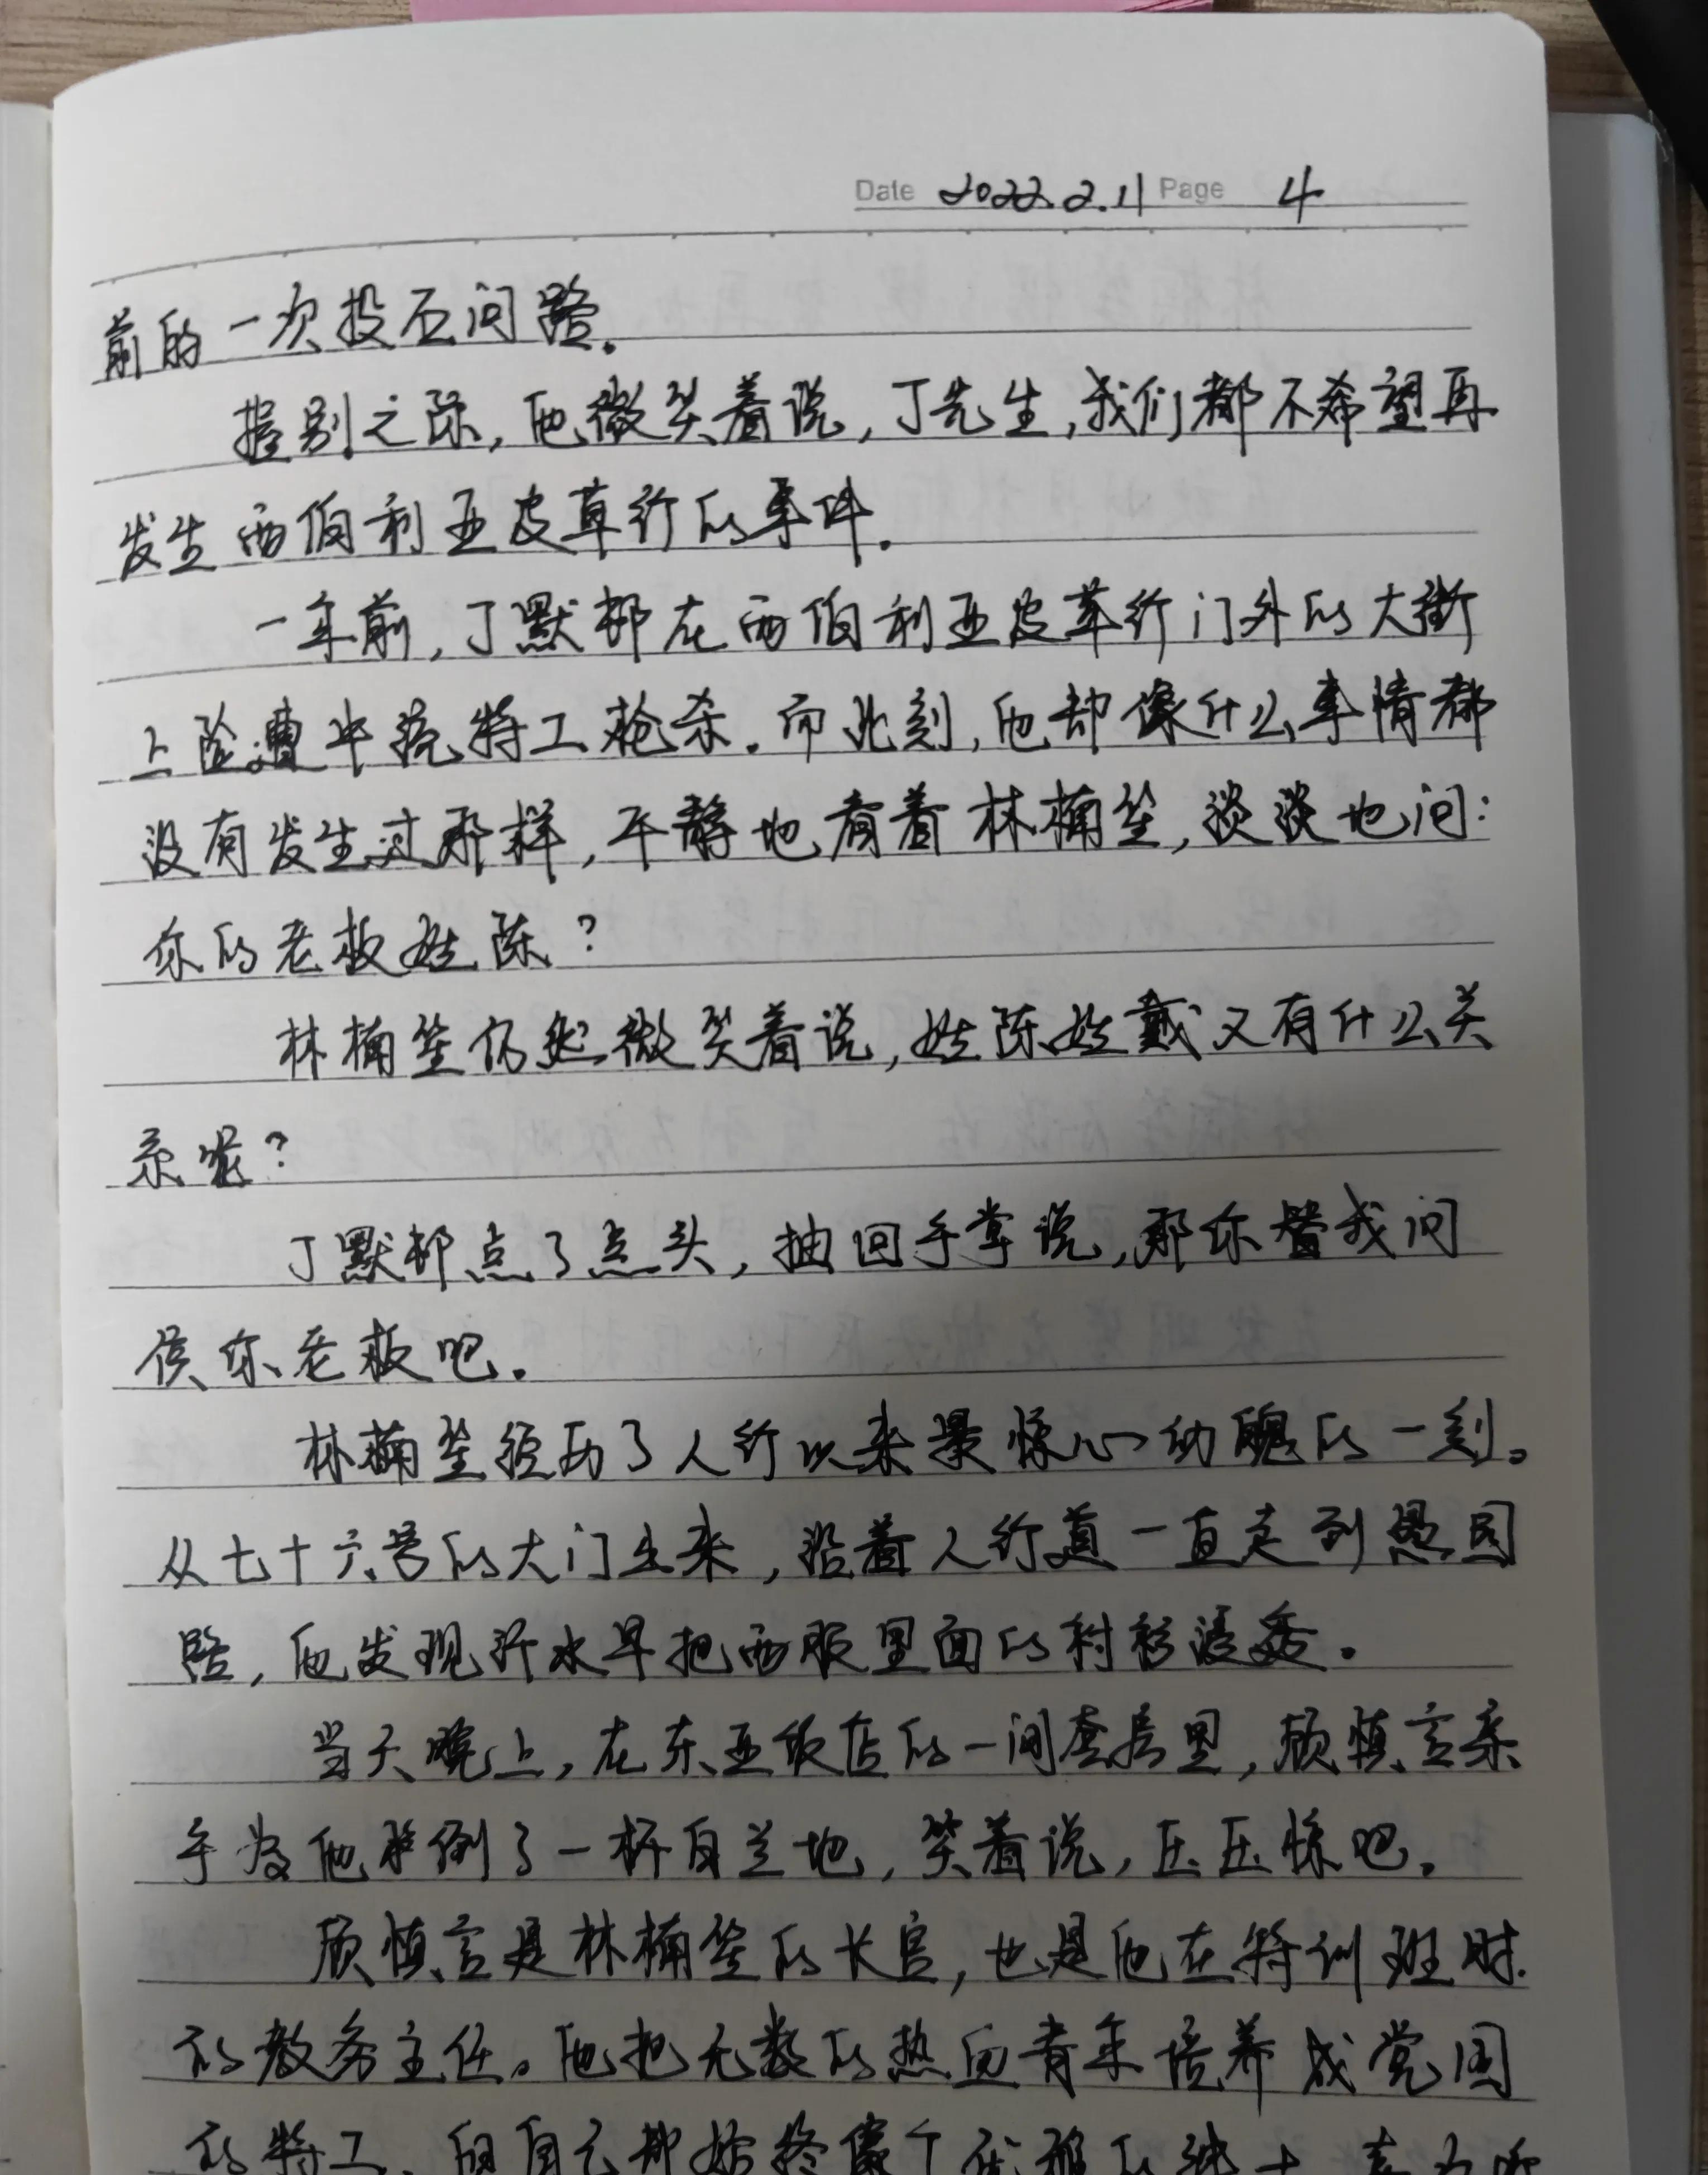 Date 2022.2.11 Page 4
前的一次投石问路.
握别之际,他微笑着说,丁先生,我们都不希望再
发生西伯利亚皮草行的事件.
一年前,丁默邨在西伯利亚皮草行门外的大街
上险遭中统特工枪杀.而此刻,他却像什么事情都
没有发生过那样,平静地看着林楠笙,淡淡地问:
你的老板姓陈?
林楠笙仍然微笑着说,姓陈姓戴又有什么关
系呢?
丁默邨点了点头,抽回手掌说,那你替我问
候你老板吧.
林楠笙经历了入行以来最惊心动魄的一刻。
从七十六号的大门出来,沿着人行道一直走到愚园
路,他发现汗水早把西服里面的衬衫浸透.
当天晚上,在东亚饭店的一间套房里,顾慎言亲
手为他倒了一杯白兰地,笑着说,压压惊吧.
顾慎言是林楠笙的长官,也是他在特训班时
的教务主任。他把无数的热血青年培养成党国
的特工,但自己却始终像个优雅的绅士,